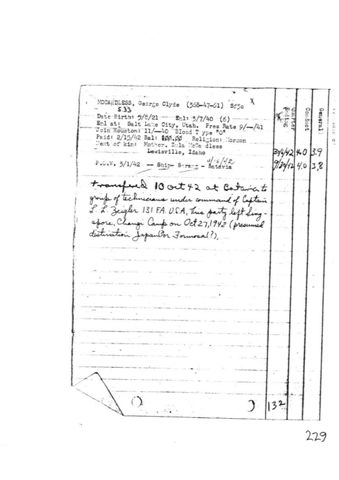 McCANDLESS, George Clyde (368-47-61) SC3c
533
Date Birth: 9/8/21 Enl: 3/7/40 (6)
Enl at: Salt Lake City, Utah. Pres Rate 9/--/41
Join Houston: 11/--40 Blood Type "O"
Paid: 2/15/42 Bal: Religion: Mormon
Next of kin: Mother, Zula McCandless
Lewisville, Idaho
P.O.W. 3/1/42 -- Ship- Serang - Batavia
4/15/42
4.0 3.9
4.0 3.8
transfered 10 Oct 42 at Batavia to
group of technicians under command of Captain
L. L. Zeigler 131 FA. USA, this party left Sing-
apore, Changi Camp on Oct 27, 1942 (presumed
destination Japan or Formosa?).
132
229